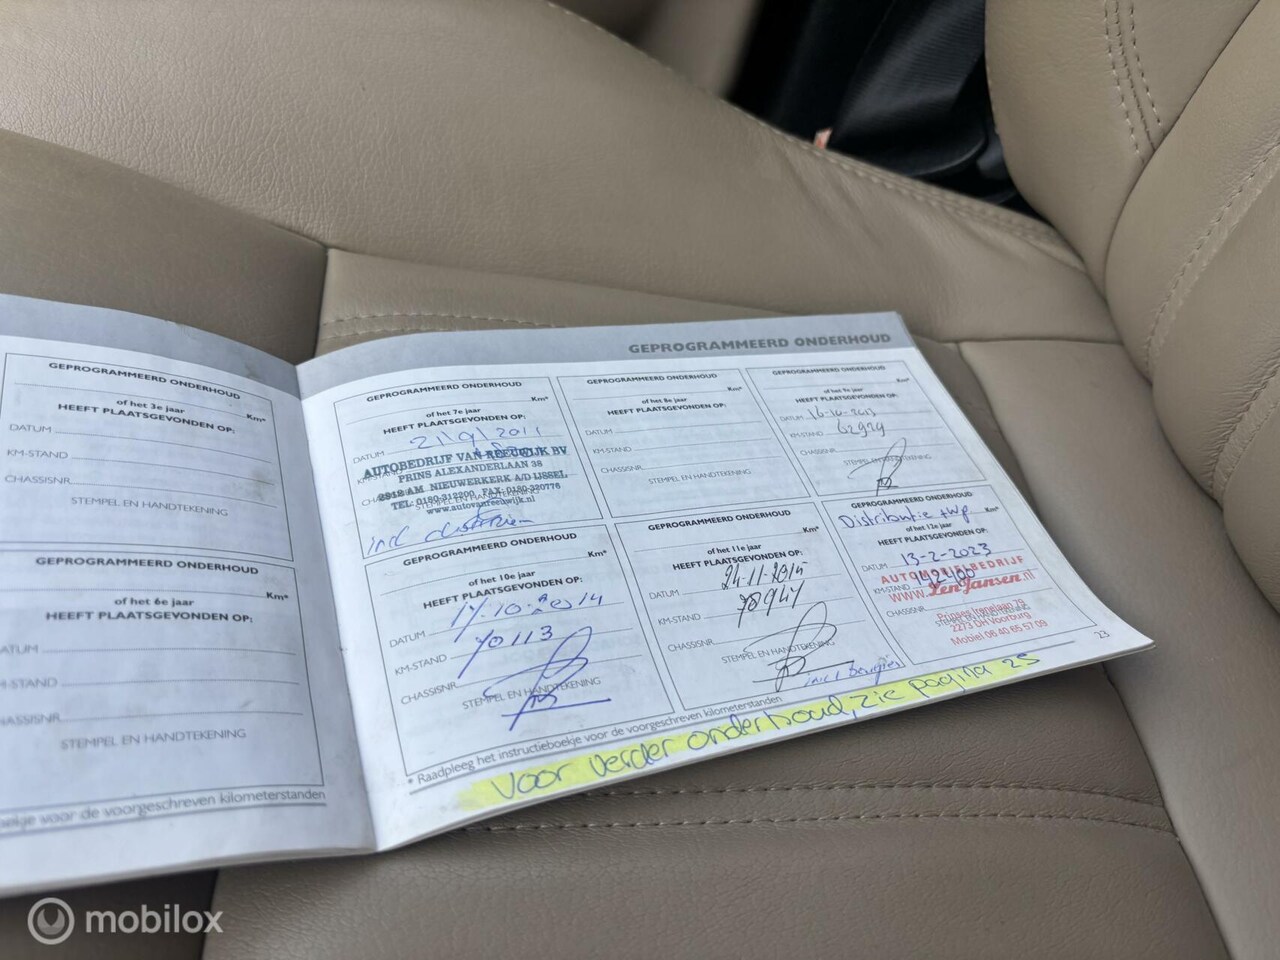 GEPROGRAMMEERD ONDERHOUD
Km*
of het 3e jaar
HEEFT PLAATSGEVONDEN OP:
DATUM
KM-STAND
CHASSISNR.
STEMPEL EN HANDTEKENING
GEPROGRAMMEERD ONDERHOUD
Km*
of het 6e jaar
HEEFT PLAATSGEVONDEN OP:
DATUM
KM-STAND
CHASSISNR.
STEMPEL EN HANDTEKENING
voor de voorgeschreven kilometerstanden
GEPROGRAMMEERD ONDERHOUD
GEPROGRAMMEERD ONDERHOUD
Km*
of het 7e jaar
HEEFT PLAATSGEVONDEN OP:
DATUM 21/9/2011
AUTOBEDRIJF VAN REEUWIJK BV
PRINS ALEXANDERLAAN 38
2912 AM NIEUWERKERK A/D IJSSEL
TEL: 0180-312200 FAX: 0180-320776
www.autovanreeuwijk.nl
incl
GEPROGRAMMEERD ONDERHOUD
Km*
of het 8e jaar
HEEFT PLAATSGEVONDEN OP:
DATUM
KM-STAND
CHASSISNR.
STEMPEL EN HANDTEKENING
GEPROGRAMMEERD ONDERHOUD
Km*
of het 9e jaar
HEEFT PLAATSGEVONDEN OP:
DATUM 16-10-2013
KM-STAND 62929
CHASSISNR.
STEMPEL EN HANDTEKENING
GEPROGRAMMEERD ONDERHOUD
Km*
of het 10e jaar
HEEFT PLAATSGEVONDEN OP:
DATUM 17-10-2014
KM-STAND 70113
CHASSISNR.
STEMPEL EN HANDTEKENING
GEPROGRAMMEERD ONDERHOUD
Km*
of het 11e jaar
HEEFT PLAATSGEVONDEN OP:
DATUM 24-11-2015
KM-STAND 78947
CHASSISNR.
STEMPEL EN HANDTEKENING
incl bougies
GEPROGRAMMEERD ONDERHOUD
Distributie + Wp Km*
of het 12e jaar
HEEFT PLAATSGEVONDEN OP:
DATUM 13-2-2023
AUTOMOBIELBEDRIJF
KM-STAND 142400
WWW.LenJansen.nl
CHASSISNR.
Prinses Irenelaan 79
2273 DH Voorburg
Mobiel 06 40 65 57 09
* Raadpleeg het instructieboekje voor de voorgeschreven kilometerstanden
23
Voor verder onderhoud, zie pagina 25
mobilox